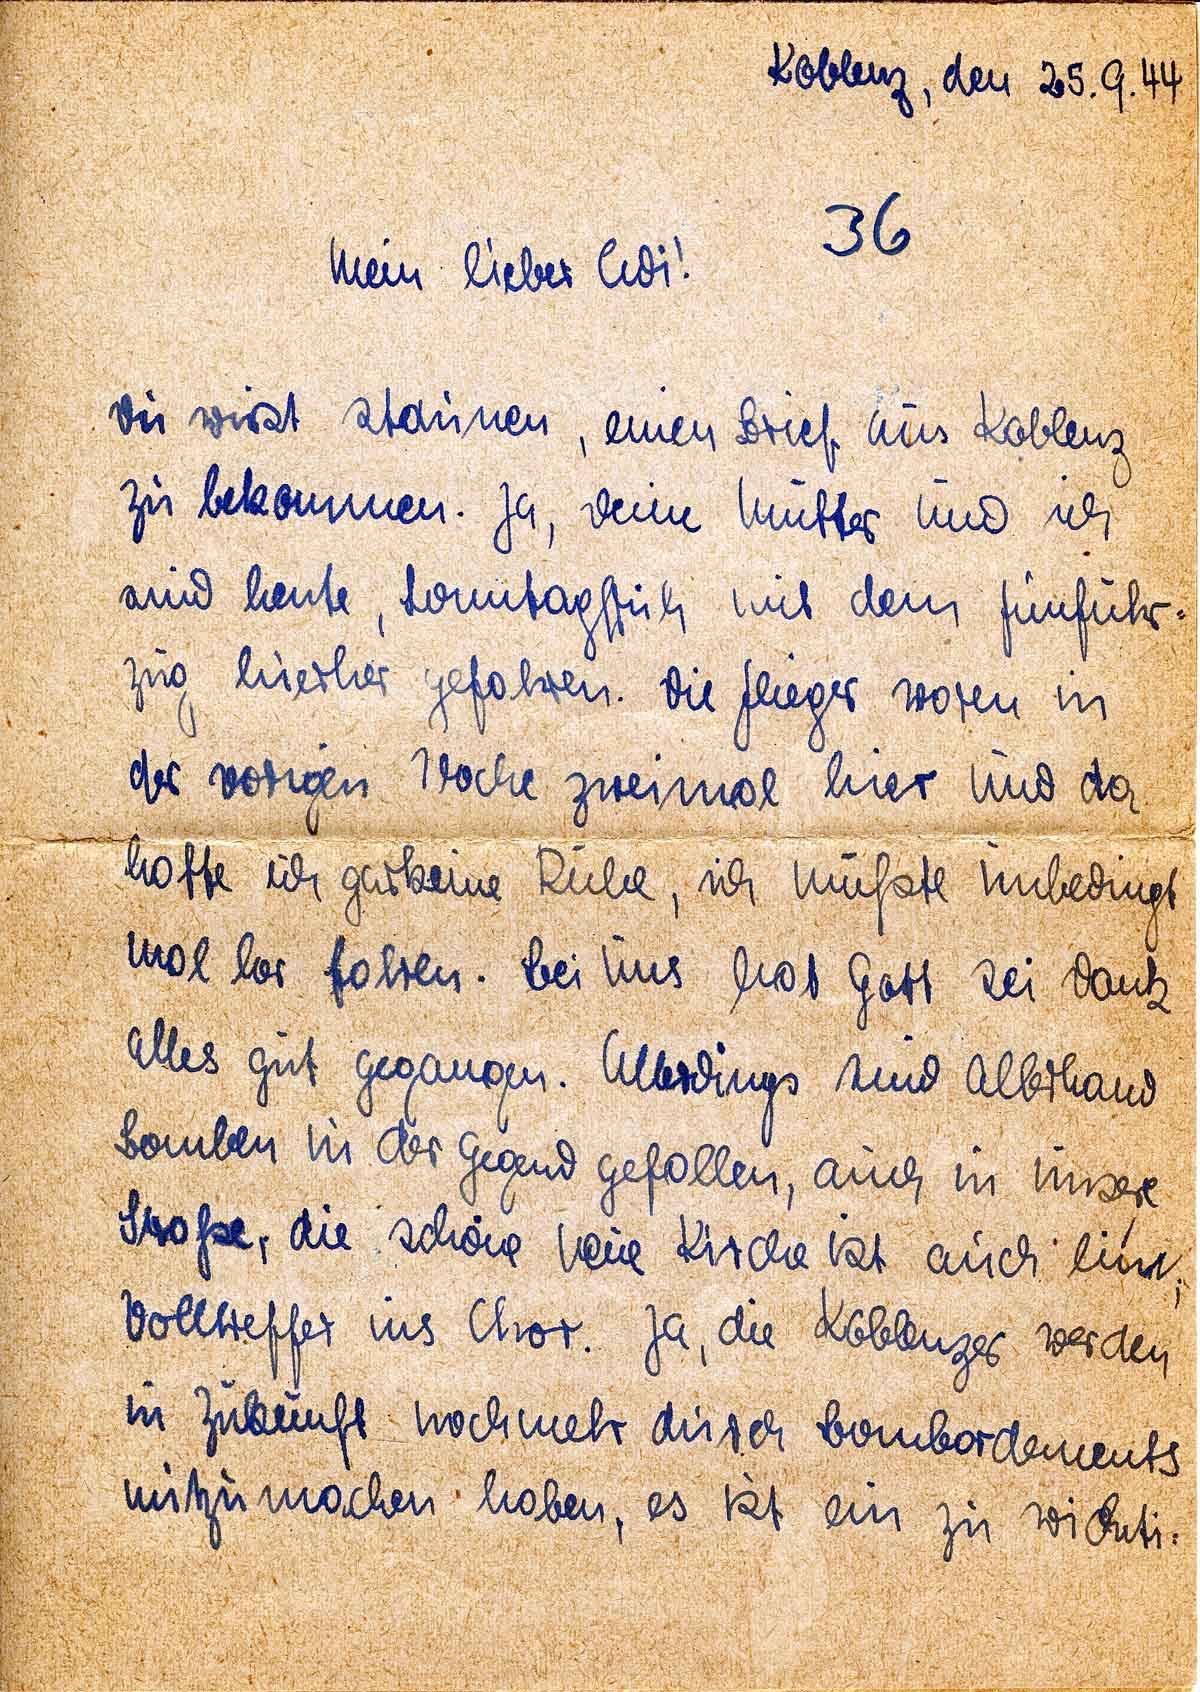 Koblenz, den 25.9.44
36
Mein lieber Adi!
Du wirst staunen, einen Brief aus Koblenz
zu bekommen. Ja, deine Mutter und ich
sind heute, Sonntagfrüh mit dem fünfuhr-
zug hierher gefahren. Die Flieger waren in
der vorigen Woche zweimal hier und da
hatte ich garkeine Ruhe, ich mußte unbedingt
mal her fahren. Bei uns hat Gott sei Dank
Alles gut gegangen. Allerdings sind Allerhand
Bomben in der Gegend gefallen, auch in unsere
Straße, die schöne neue Kirche ist auch hin,
Volltreffer ins Chor. Ja, die Koblenzer werden
in Zukunft nochmehr durch Bombardements
mitzumachen haben, es ist ein zu wichti-